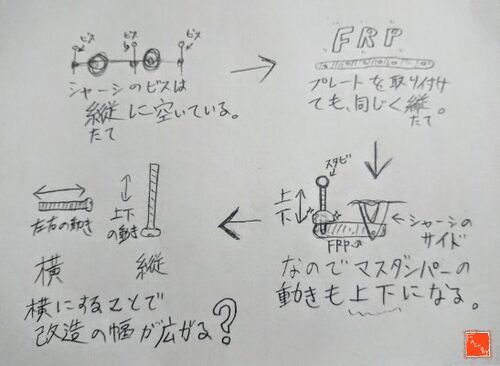 ビス
ビス
ビス
シャーシのビスは
縦に空いている。
たて
FRP
プレートを取り付け
ても、同じく縦。
たて
スタビ
上
下
FRP
シャーシの
サイド
なのでマスダンパーの
動きも上下になる。
左右の動き
上下
の動き
横
縦
横にすることで
改造の幅が広がる?